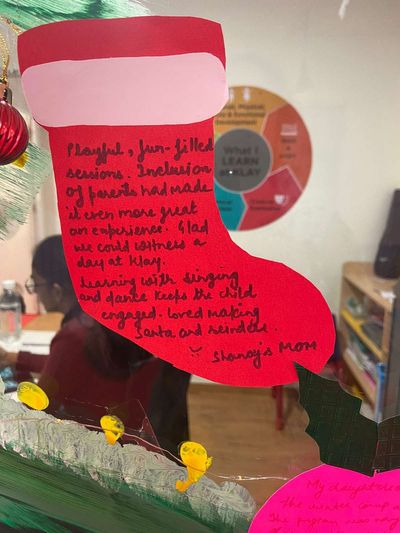 Playful, fun-filled
sessions. Inclusion
of parents had made
it even more great
an experience. Glad
we could witness a
day at Klay.
Learning with singing
and dance keeps the child
engaged. loved making
Santa and reindeer.
MOM
What I
LEARN
KLAY
Development
My daughter
The winter camp
The program was